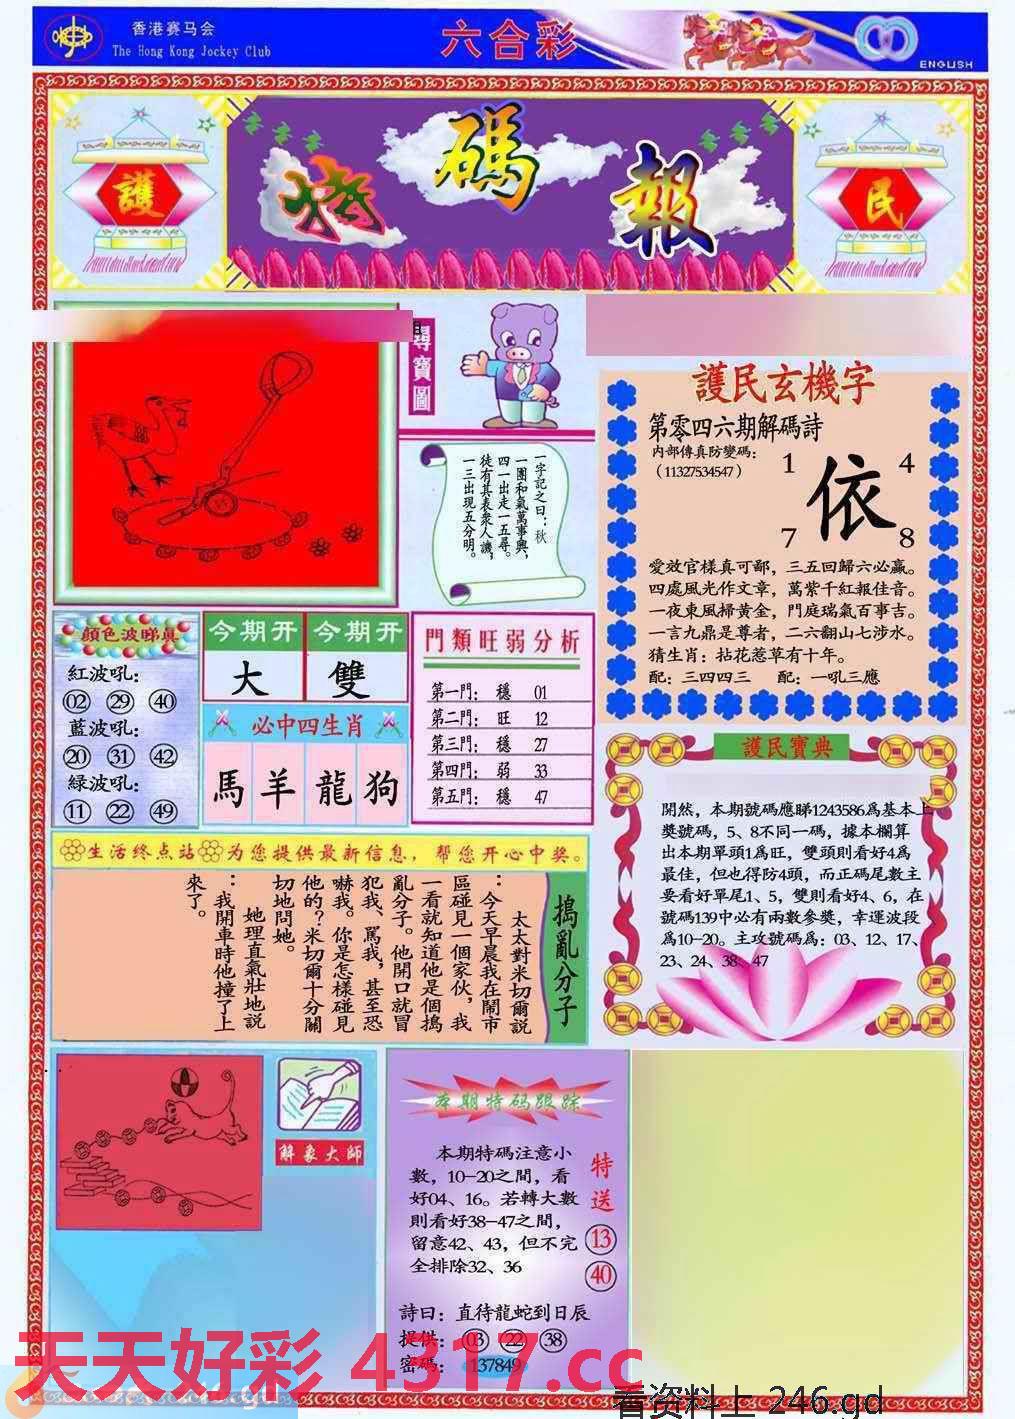 香港赛马会
The Hong Kong Jockey Club
六合彩
ENGLISH
護
特碼報
民
尋寶圖
一字記之曰：秋
一團和氣萬事興，
四一出走一五尋。
徒有其表衆人譏，
一三出現五分明。
護民玄機字
第零四六期解碼詩
内部傳真防變碼：
（11327534547）
1 4
依
7 8
愛效官樣真可鄙，三五回歸六必贏。
四處風光作文章，萬紫千紅報佳音。
一夜東風掃黃金，門庭瑞氣百事吉。
一言九鼎是尊者，二六翻山七涉水。
猜生肖：拈花惹草有十年。
配：三四四三 配：一吼三應
顔色波睇真
紅波吼：
02 29 40
藍波吼：
20 31 42
綠波吼：
11 22 49
今期开 今期开
大 雙
必中四生肖
馬 羊 龍 狗
門類旺弱分析
第一門： 穩 01
第二門： 旺 12
第三門： 穩 27
第四門： 弱 33
第五門： 穩 47
護民寶典
開然，本期號碼應睇1243586爲基本上
獎號碼，5、8不同一碼，據本欄算
出本期單頭1爲旺，雙頭則看好4爲
最佳，但也得防4頭，而正碼尾數主
要看好單尾1、5，雙則看好4、6，在
號碼139中必有兩數參獎，幸運波段
爲10-20。主攻號碼爲：03、12、17、
23、24、38、47
生活终点站 为您提供最新信息，帮您开心中奖。
搗亂分子
太太對米切爾説
：今天早晨我在鬧市
區碰見一個家伙，我
一看就知道他是個搗
亂分子。他開口就冒
犯我、駡我，甚至恐
嚇我。你是怎樣碰見
他的？米切爾十分關
切地問她。
她理直氣壯地説
：我開車時他撞了上
來了。
解象大師
本期特码跟踪
本期特碼注意小
數，10-20之間，看
好04、16。若轉大數
則看好38-47之間，
留意42、43，但不完
全排除32、36
特送
13
40
詩曰：直待龍蛇到日辰
提供：03 22 38
密碼：137849
天天好彩 4317.cc
246.gd
看资料上 246.gd